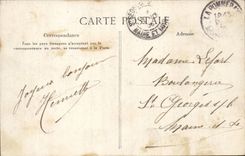 CARTE POSTALE
Correspondance
Adresse
Tous les pays étrangers n'acceptent pas la
correspondance au recto, se renseigner à la Poste
MAINE ET
LA POMMERAYE
Joyeux bonjour
Henriette
Madame Lefort
Boulangerie
St Georges s/L
Maine & L